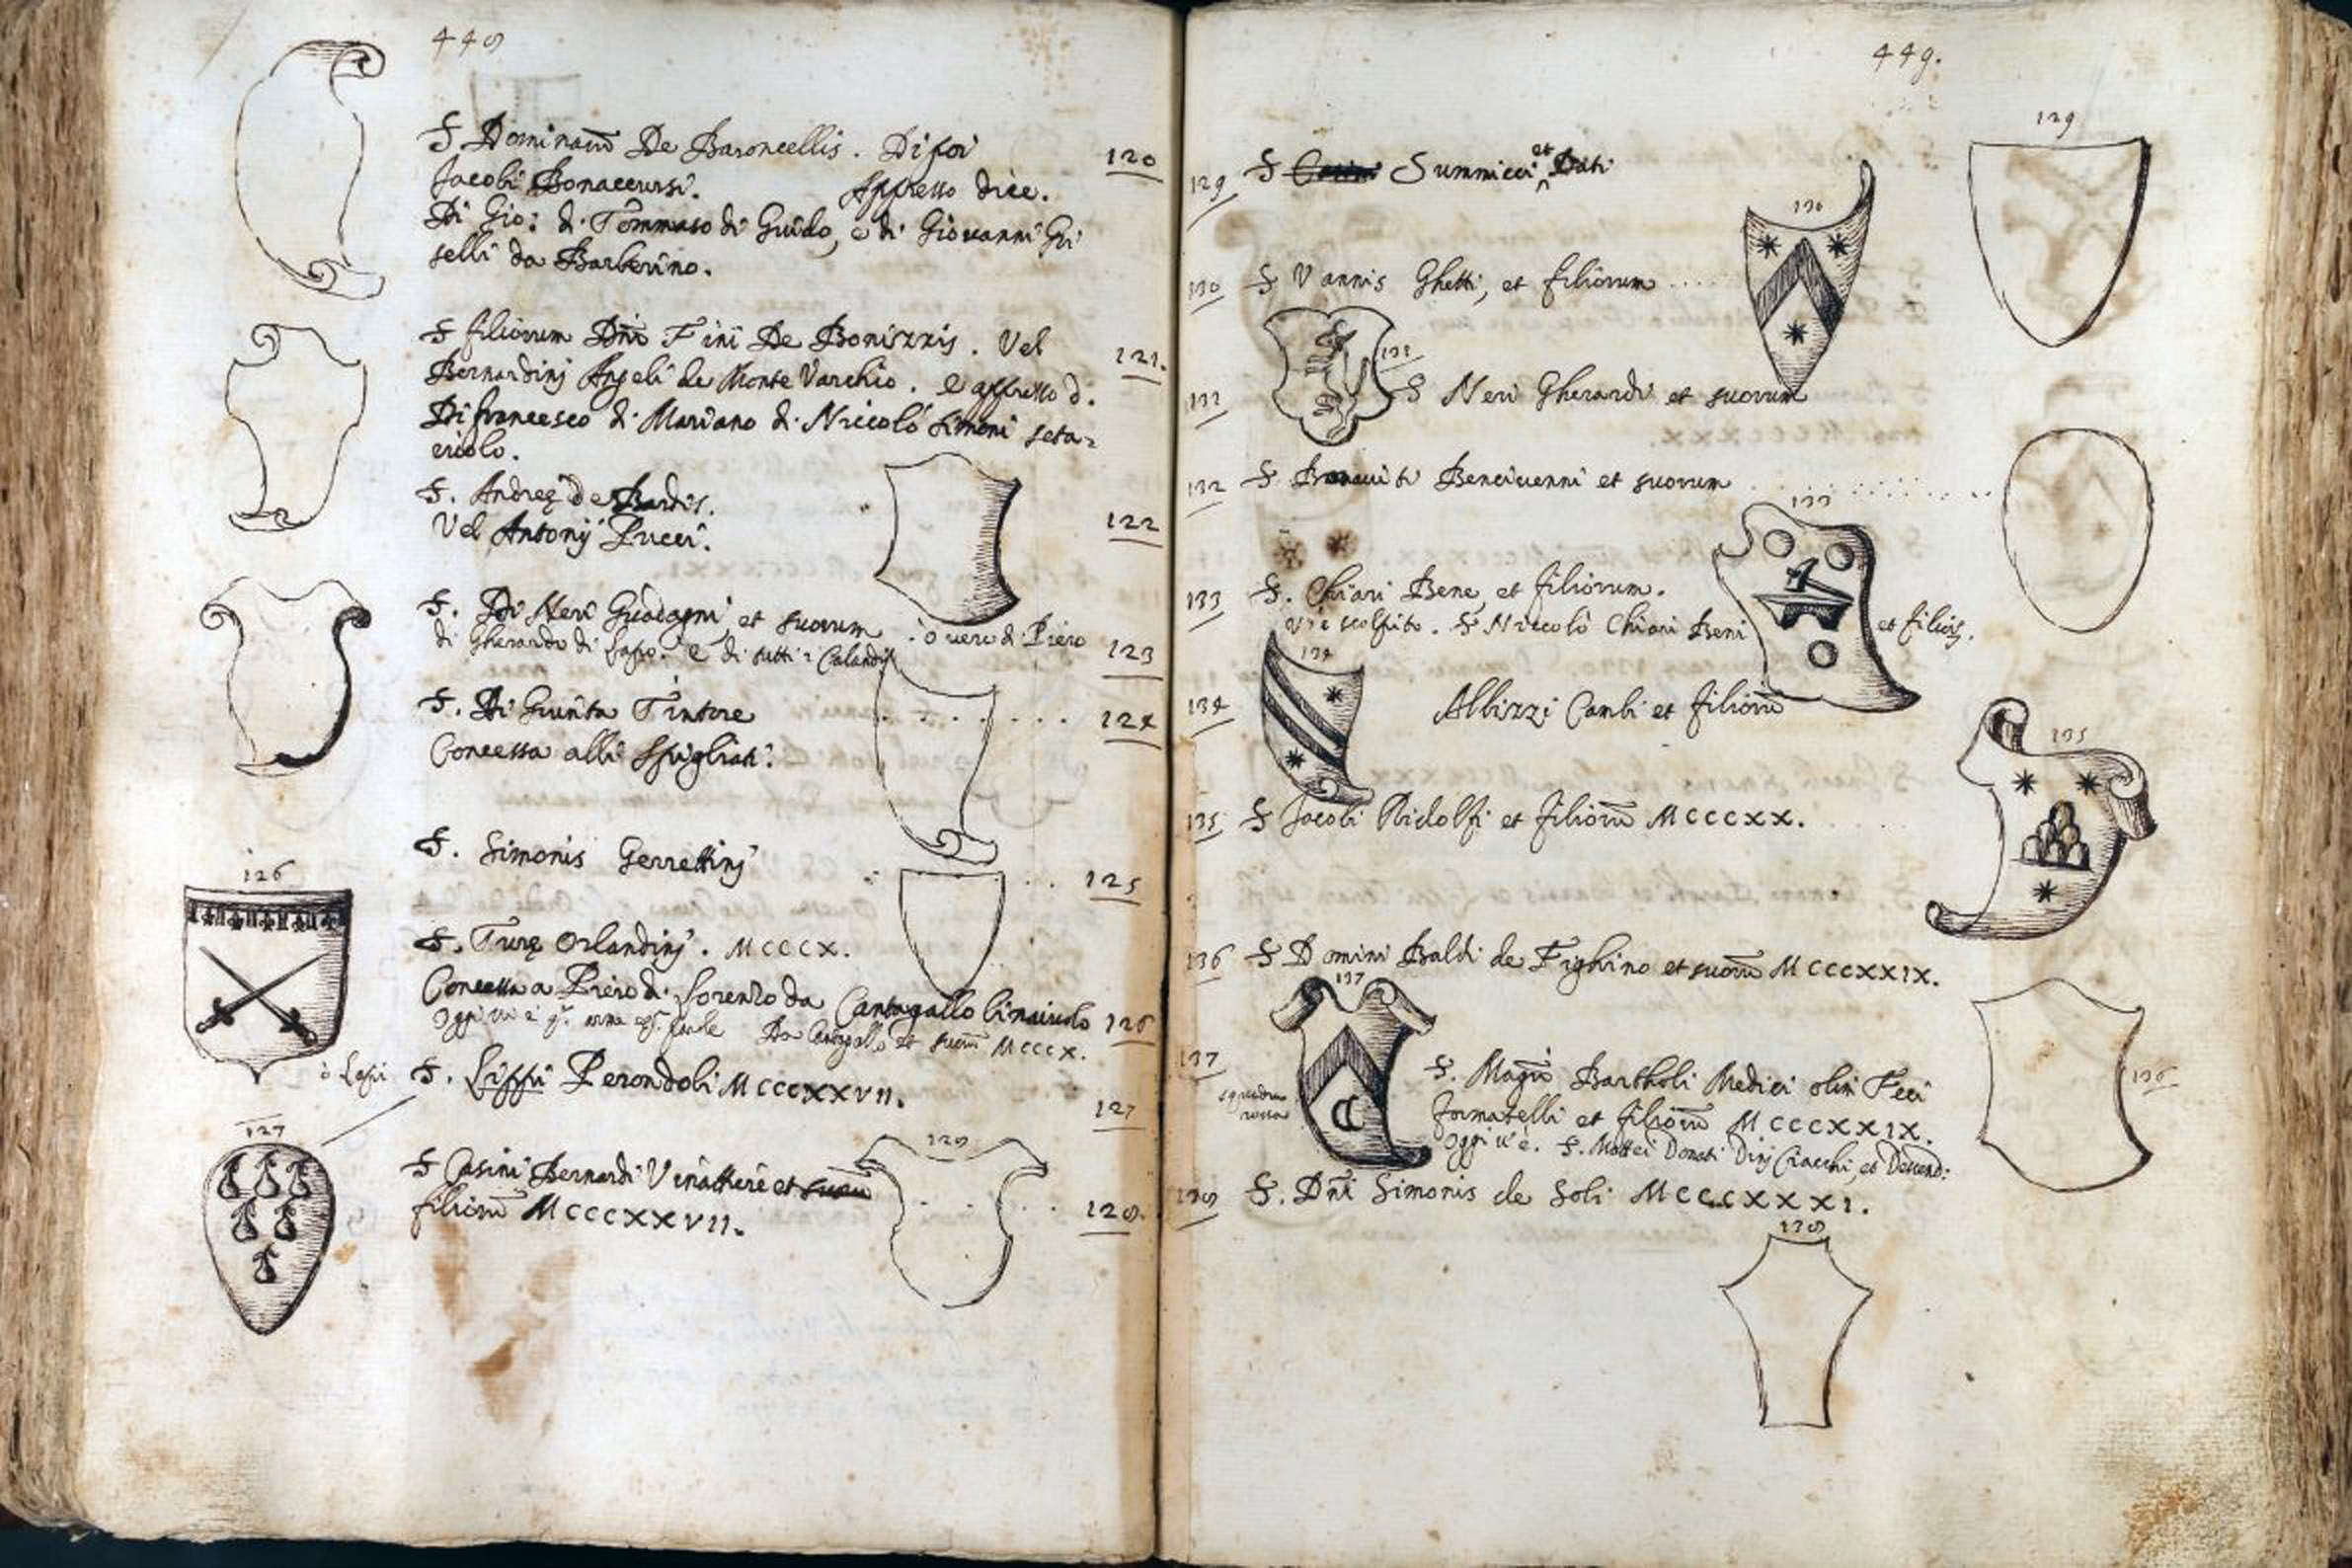 448
S Dominarū De Baroncellis. Di poi
Jacobi Bonaccursi. Appresso dice.
Di Gio: di Tommaso di Guido, e di Giovanni Gri
selli da Barberino.
120
S filiorum Dñi Fini De Bonizzis. Vel
Bernardinj Angeli de Monte Varchio. e appresso d.
Di francesco di Mariano di Niccolò Simoni seta=
iuolo.
121.
S. Andreę de Bardis.
Vel Antonij Pucci.
122
S. Di Neri Guadagni et suorum ò vero di Piero
di Gherardo di e di tutti i Calandri
123
S. Di Giunta Tintore
Concessa alli Spigliati.
124
S. Simonis Gerrettinj
125
126
S. Turę Orlandinj. MCCCX.
Concessa a Piero di Lorenzo da Cantagallo linaiuolo
Oggi vi è Da Cantagallo et suorū MCCCX.
126
ò Lapi
S. Lippi Perondoli MCCCXXVII.
127
127
S Casini Bernardi Vinattiere et suorū
filiorū MCCCXXVII.
128
128.
449.
129
129 S Summicci et Dati
130
130 S Vannis Ghetti, et filiorum
131
131 S Neri Gherardi et suorum
132 S Bencivenni et suorum
133
133 S. Chiari Bene et filiorum.
vi è scolpito. S Niccolò Chiari Beni et filior.
134
134 Albizzi Cambi et filiorū
135
135 S Jacobi Ridolfi et filiorū MCCCXX.
136 S Domini Baldi de Fighino et suorū MCCCXXIX.
137
136
137 S. Magri Bartholi Medici olim Feci
formatelli et filiorū MCCCXXIX.
squadra
rossa
Oggi v'è. S. Mattei Donati Dinj Ciacchi, et Descend:
138 S. Dñi Simonis de Soli MCCCXXXI.
138